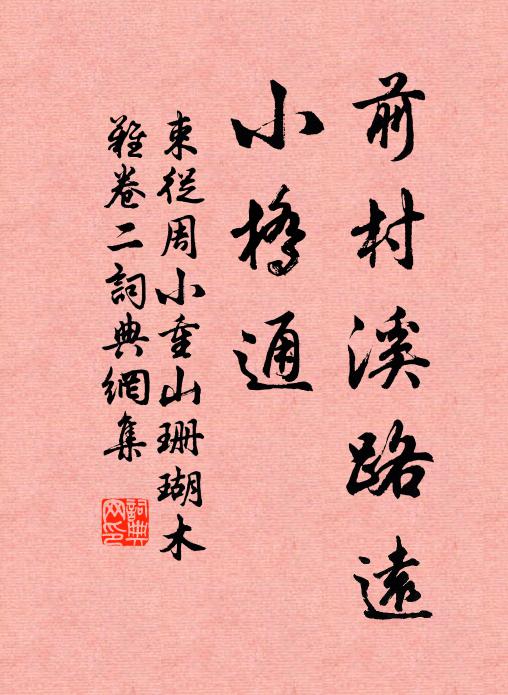 前村溪路遠
小橋通
束從周小重山珊瑚木
難卷二詞典網集
詞典網印